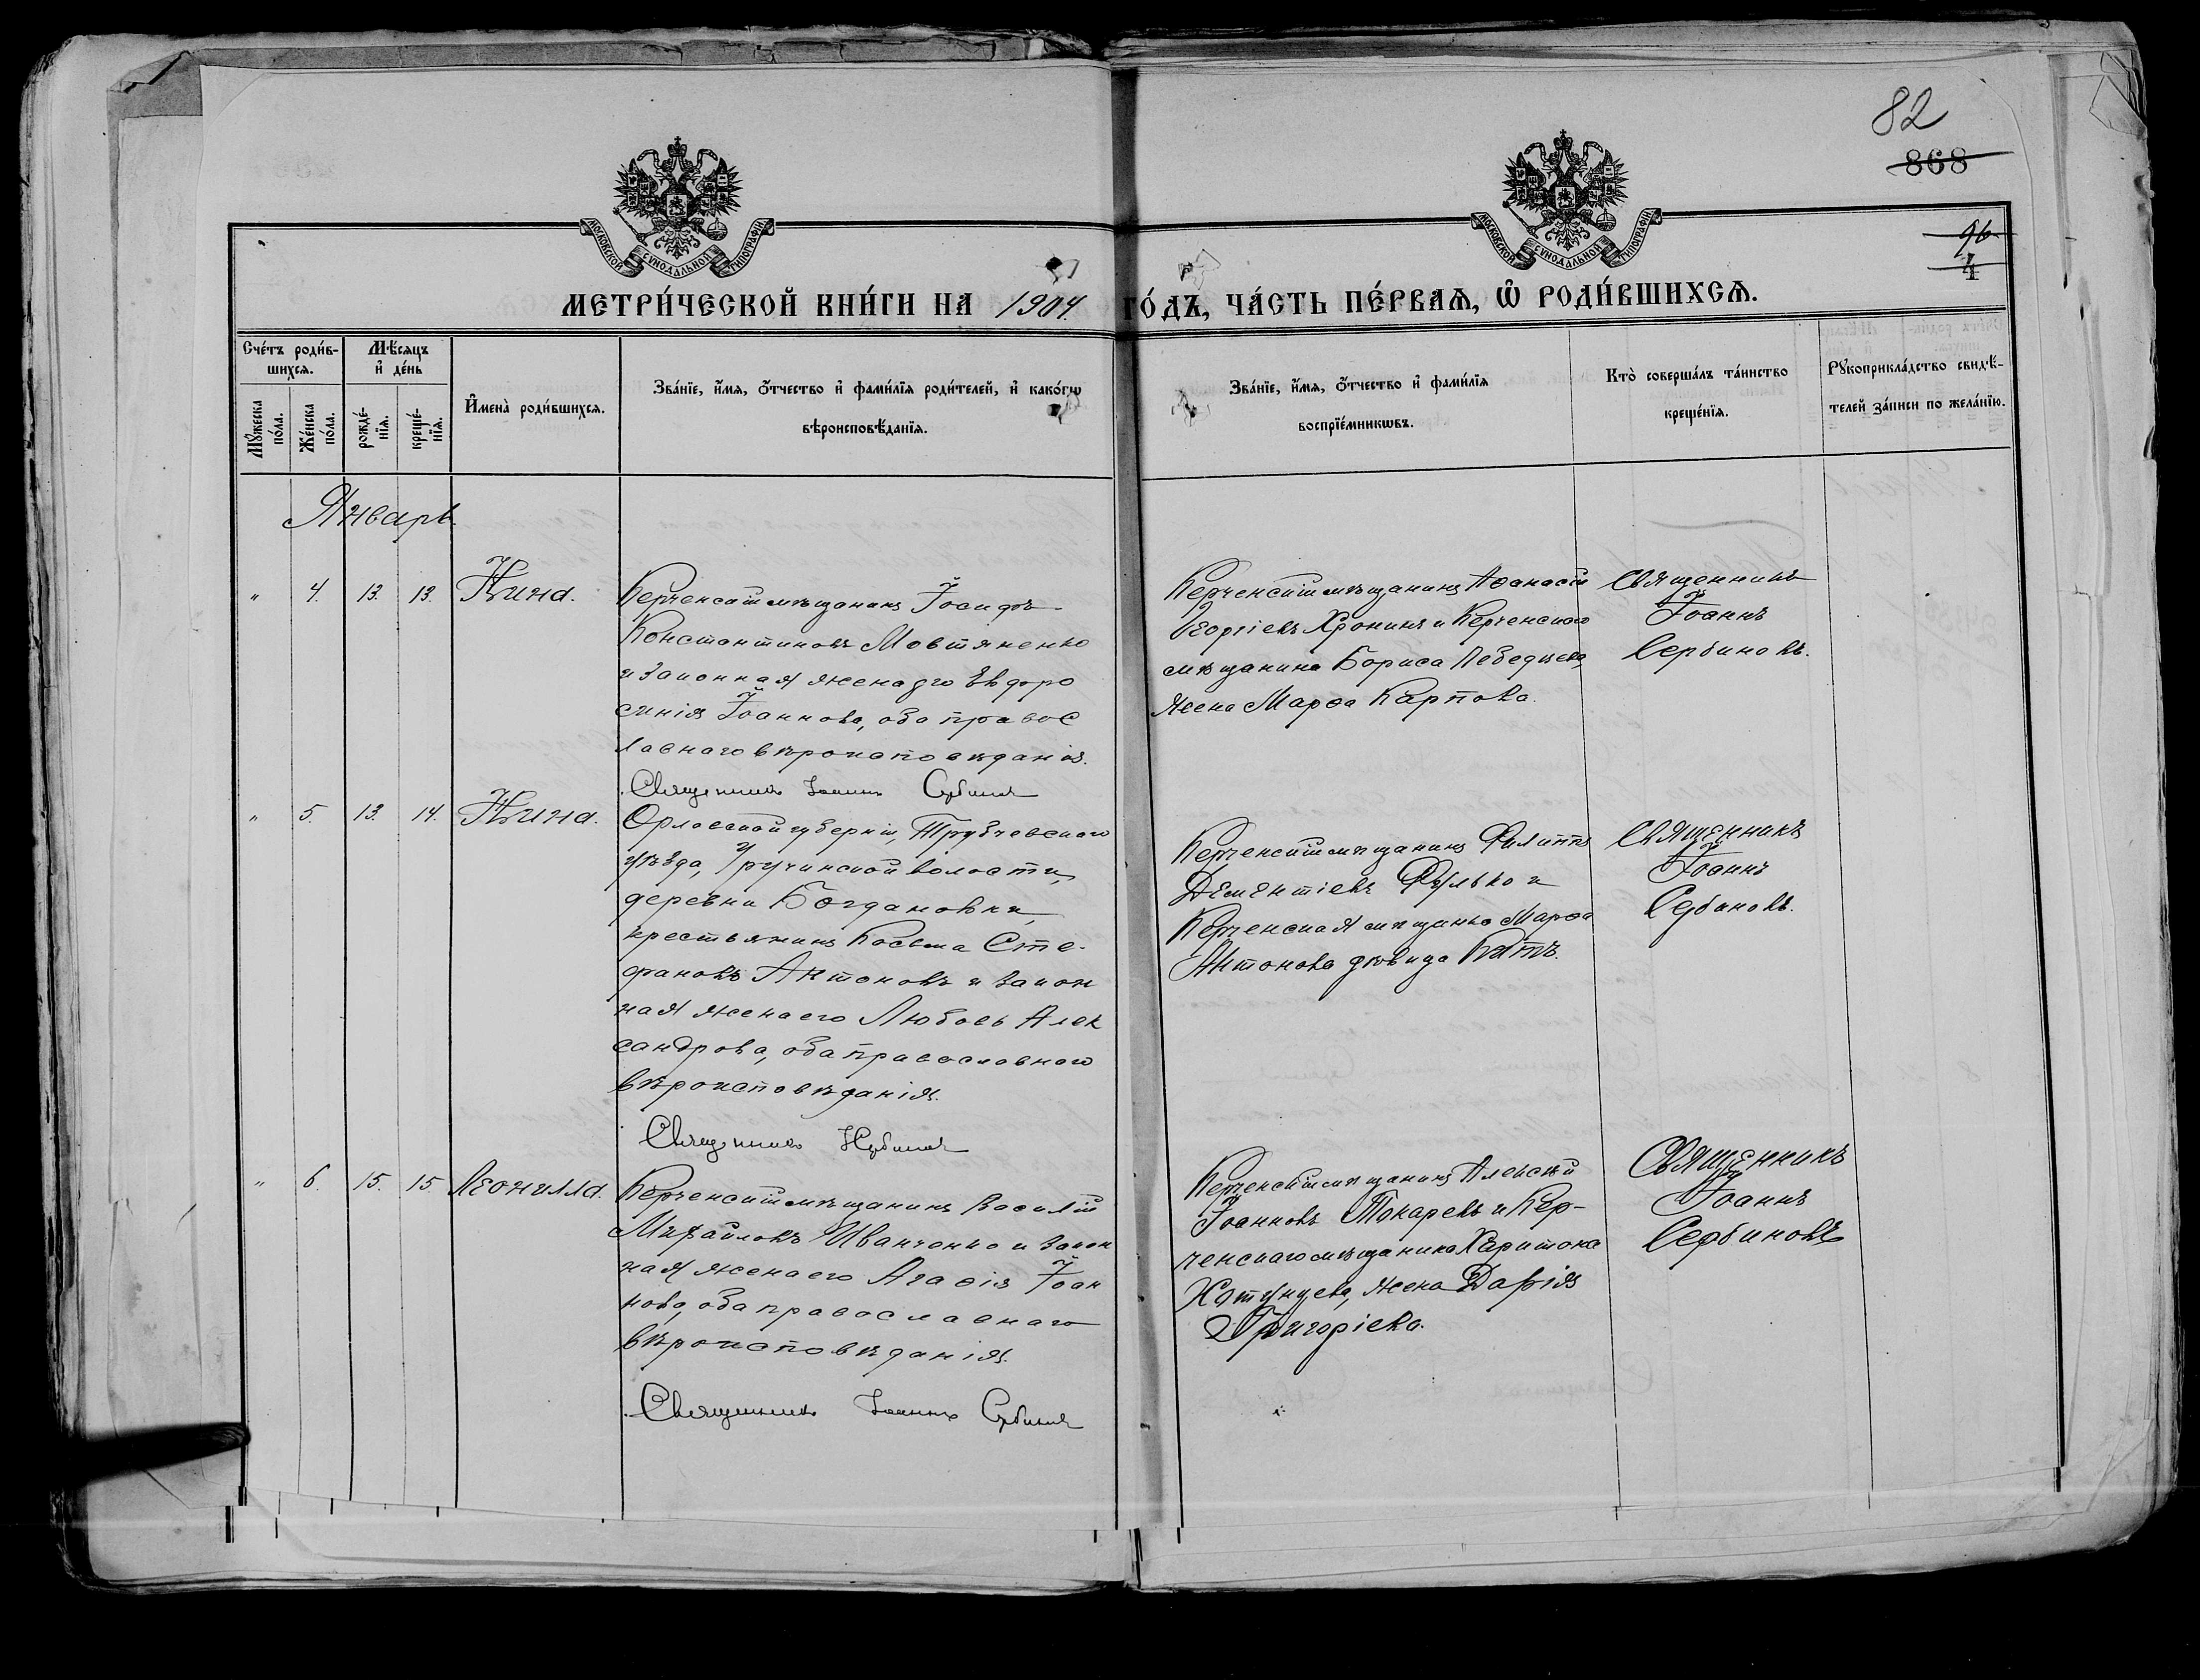 82
868
96
4
МОСКОВСКОЙ СѴНОДАЛЬНОЙ ТИПОГРАФІИ
МОСКОВСКОЙ СѴНОДАЛЬНОЙ ТИПОГРАФІИ
МЕТРИ́ЧЕСКОЙ КНИ́ГИ НА 1904. ГО́ДЪ, ЧА́СТЬ ПЕ́РВАѦ, Ѡ҆ РОДИ́ВШИХСѦ.
Сче́тъ роди́в-
шихсѧ.
Мѣ́сѧцъ
и҆ де́нь
Мꙋ́жеска
по́ла.
Же́нска
по́ла.
рожде́-
нїѧ.
креще́-
нїѧ.
И҆мена̀ роди́вшихсѧ.
Зва́нїе, и҆́мѧ, ѻ҆́тчество и҆ фами́лїѧ роди́телей, и҆ како́гѡ
вѣроисповѣ́данїѧ.
Зва́нїе, и҆́мѧ, ѻ҆́тчество и҆ фами́лїѧ
воспрїе́мникѡвъ.
Кто̀ соверша́лъ та́инство
креще́нїѧ.
Рꙋкоприкла́дство свидѣ́-
телей за́писи по жела́нїю.
Январь.
" 4. 13. 13. Нина.
Керченскій мѣщанинъ Іосифъ
Константиновъ Мовтяненко
и законная жена его Евфро
синія Іоаннова, оба правос
лавнаго вѣроисповѣданія.
Священникъ Іоаннъ Сербиновъ
Керченскій мѣщанинъ Аѳанасій
Георгіевъ Хронинъ и Керченскаго
мѣщанина Бориса Лебедцева,
жена Марѳа Карпова.
Священникъ
Іоаннъ
Сербиновъ.
" 5. 13. 14. Нина.
Орловской губерніи, Трубчевскаго
уѣзда, Уручинской волости,
деревни Богдановки,
крестьянинъ Косьма Сте-
фановъ Антоновъ и закон
ная жена его Любовь Алек
сандрова, оба православнаго
вѣроисповѣданія.
Священникъ Сербиновъ
Керченскій мѣщанинъ Филиппъ
Дементіевъ и
Керченская мѣщанка Марѳа
Антонова дѣвица
Священникъ
Іоаннъ
Сербиновъ.
" 6. 15. 15 Леонилла.
Керченскій мѣщанинъ Василій
Михайловъ Иванченко и закон
ная жена его Агаѳія Іоан
нова, оба православнаго
вѣроисповѣданія.
Священникъ Іоаннъ Сербиновъ
Керченскій мѣщанинъ Алексѣй
Іоанновъ Токаревъ и Кер-
ченскаго мѣщанина Харитона
жена Дарія
Григоріева.
Священникъ
Іоаннъ
Сербиновъ